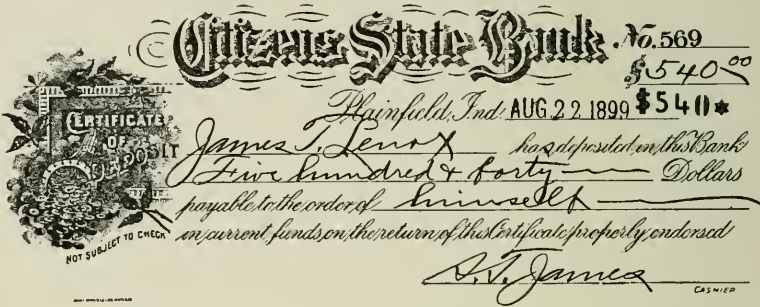 Citizens State Bank. No. 569
$540 00
Plainfield, Ind. AUG 22 1899 $540*
CERTIFICATE OF DEPOSIT
James T. Lenox has deposited in this Bank
Five hundred & forty Dollars
payable to the order of himself
in current funds on the return of this Certificate properly endorsed
NOT SUBJECT TO CHECK
S. T. James
CASHIER